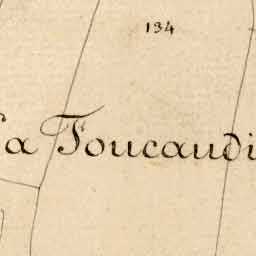 134
La Foucaudi